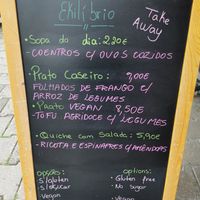 Ekilíbrio
Take
Away
• Sopa do dia: 2,20€
- COENTROS C/ OVOS COZIDOS
• Prato Caseiro: 7,00€
FOLHADOS DE FRANGO C/
ARROZ DE LEGUMES
• Prato VEGAN 8,50€
- TOFU AGRIDOCE C/ LEGUMES
• Quiche com Salada: 5,90€
- RICOTA E ESPINAFRES C/ AMÊNDOAS
opções:
S/ glúten
S/ açúcar
Vegan
options:
Gluten free
No sugar
Vegan